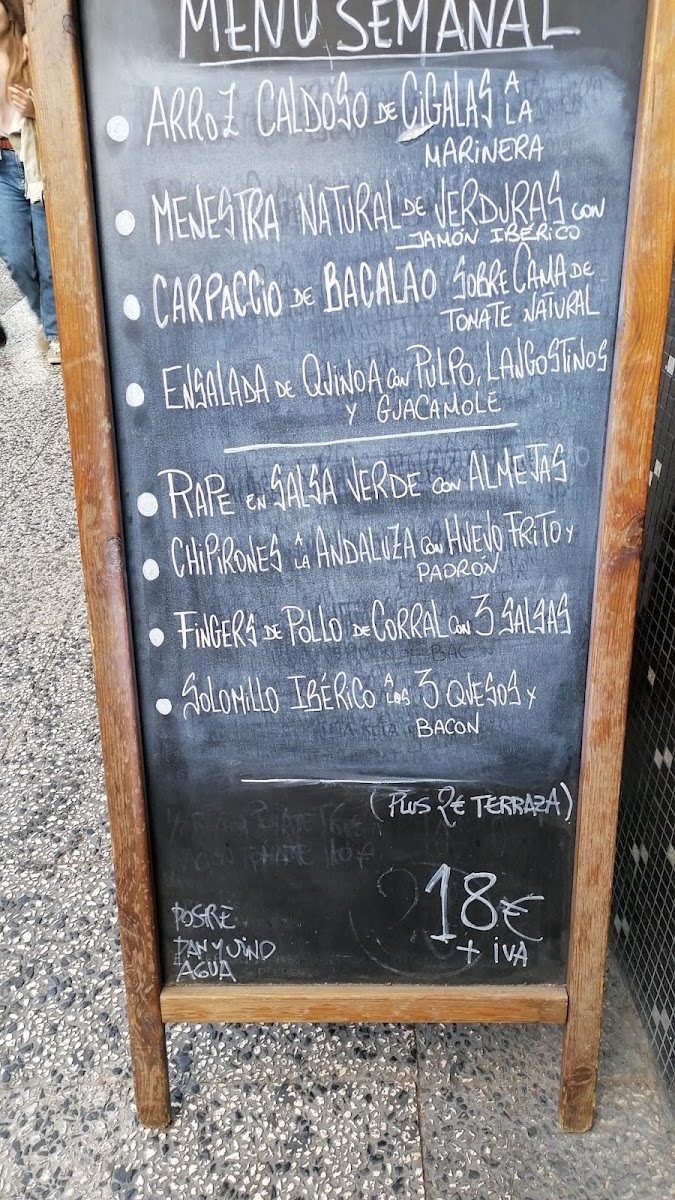 MENÚ SEMANAL
ARROZ CALDOSO DE CIGALAS A LA
MARINERA
MENESTRA NATURAL DE VERDURAS CON
JAMÓN IBÉRICO
CARPACCIO DE BACALAO SOBRE CAMA DE
TOMATE NATURAL
ENSALADA DE QUINOA CON PULPO, LANGOSTINOS
Y GUACAMOLE
RAPE EN SALSA VERDE CON ALMEJAS
CHIPIRONES A LA ANDALUZA CON HUEVO FRITO Y
PADRÓN
FINGERS DE POLLO DE CORRAL CON 3 SALSAS
SOLOMILLO IBÉRICO A LOS 3 QUESOS Y
BACON
(PLUS 2€ TERRAZA)
18€
+ IVA
POSTRE
PAN Y VINO
AGUA